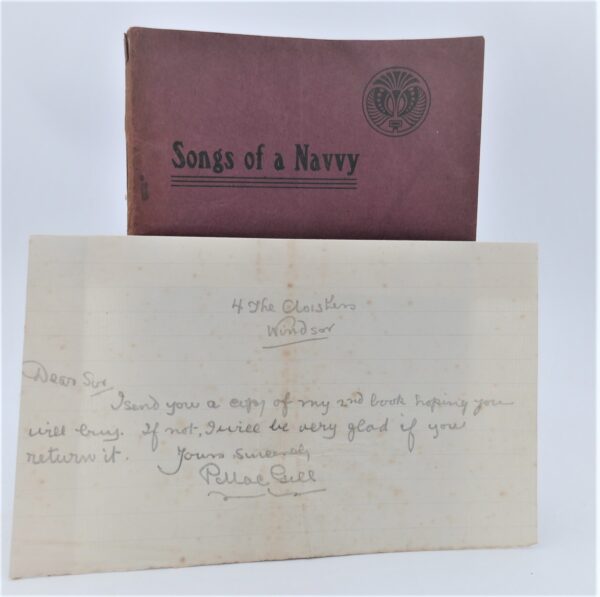 Songs of a Navvy
4 The Cloisters
Windsor
Dear Sir,
I send you a copy of my 2nd book hoping you
will buy. If not, I will be very glad if you
return it. Yours sincerely,
P. MacGill